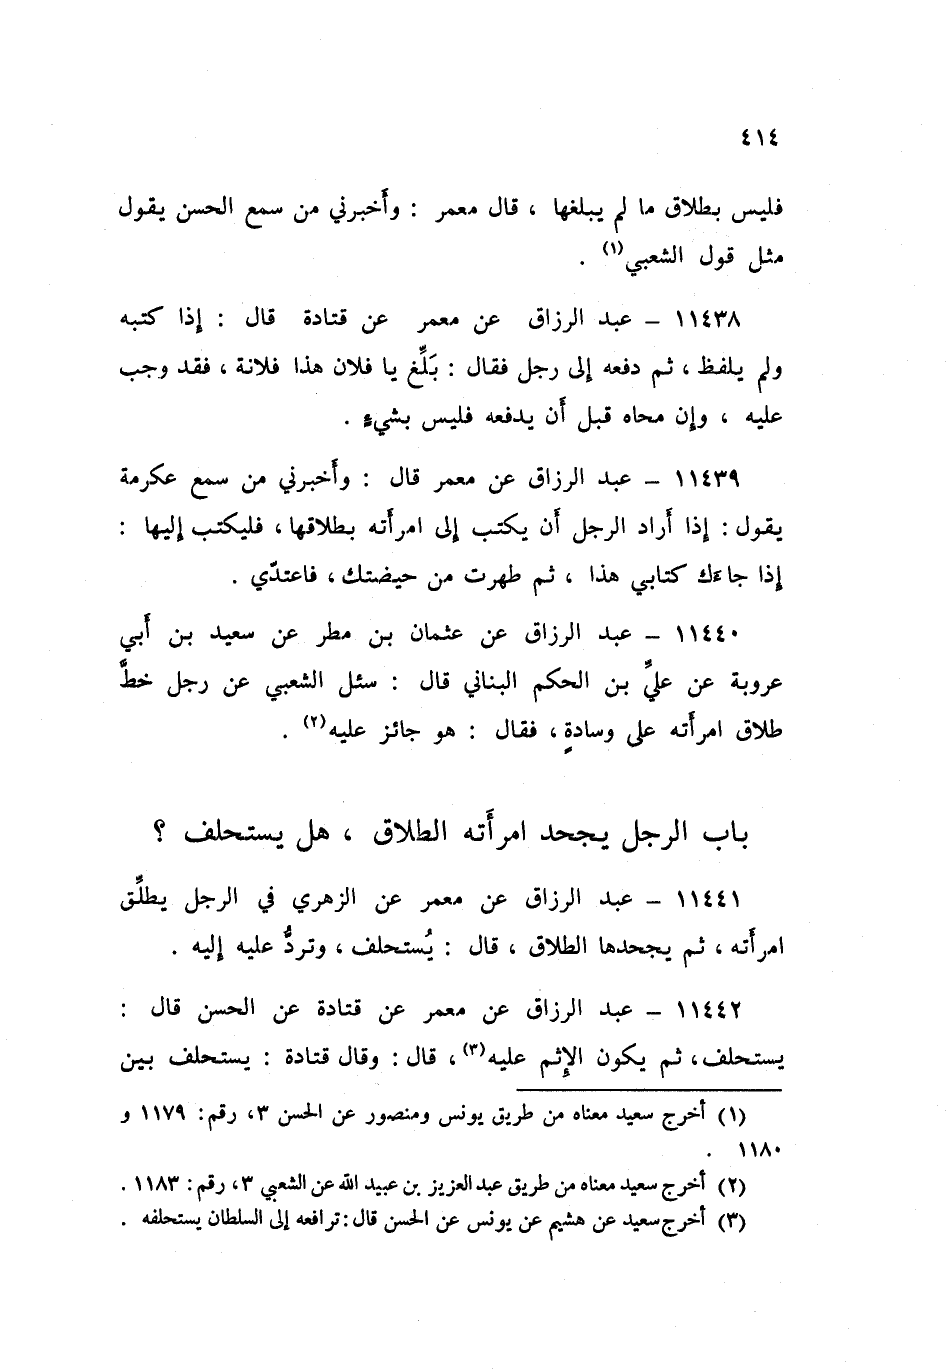 ٤١٤
فليس بطلاق ما لم يبلغها ، قال معمر : وأَخبرني من سمع الحسن يقول
مثل قول الشعبي(١) .
١١٤٣٨ – عبد الرزاق عن معمر عن قتادة قال : إذا كتبه
ولم يلفظ ، ثم دفعه إلى رجل فقال : بَلِّغ يا فلان هذا فلانة ، فقد وجب
عليه ، وإن محاه قبل أَن يدفعه فليس بشيءٍ .
١١٤٣٩ – عبد الرزاق عن معمر قال : وأَخبرني من سمع عكرمة
يقول : إذا أَراد الرجل أَن يكتب إلى امرأَته بطلاقها ، فليكتب إليها :
إذا جاءَك كتابي هذا ، ثم طهرت من حيضتك ، فاعتدّي .
١١٤٤٠ – عبد الرزاق عن عثمان بن مطر عن سعيد بن أَبي
عروبة عن عليٍّ بن الحكم البناني قال : سئل الشعبي عن رجل خطَّ
طلاق امرأَته على وسادةٍ ، فقال : هو جائز عليه(٢) .
باب الرجل يجحد امرأَته الطلاق ، هل يستحلف ؟
١١٤٤١ – عبد الرزاق عن معمر عن الزهري في الرجل يطلِّق
امرأَته ، ثم يجحدها الطلاق ، قال : يُستحلف ، وتردُّ عليه إليه .
١١٤٤٢ – عبد الرزاق عن معمر عن قتادة عن الحسن قال :
يستحلف ، ثم يكون الإِثم عليه(٣) ، قال : وقال قتادة : يستحلف بين
(١) أخرج سعيد معناه من طريق يونس ومنصور عن الحسن ٣، رقم: ١١٧٩ و
١١٨٠ .
(٢) أخرج سعيد معناه من طريق عبد العزيز بن عبيد الله عن الشعبي ٣، رقم: ١١٨٣ .
(٣) أخرج سعيد عن هشيم عن يونس عن الحسن قال: ترافعه إلى السلطان يستحلفه .